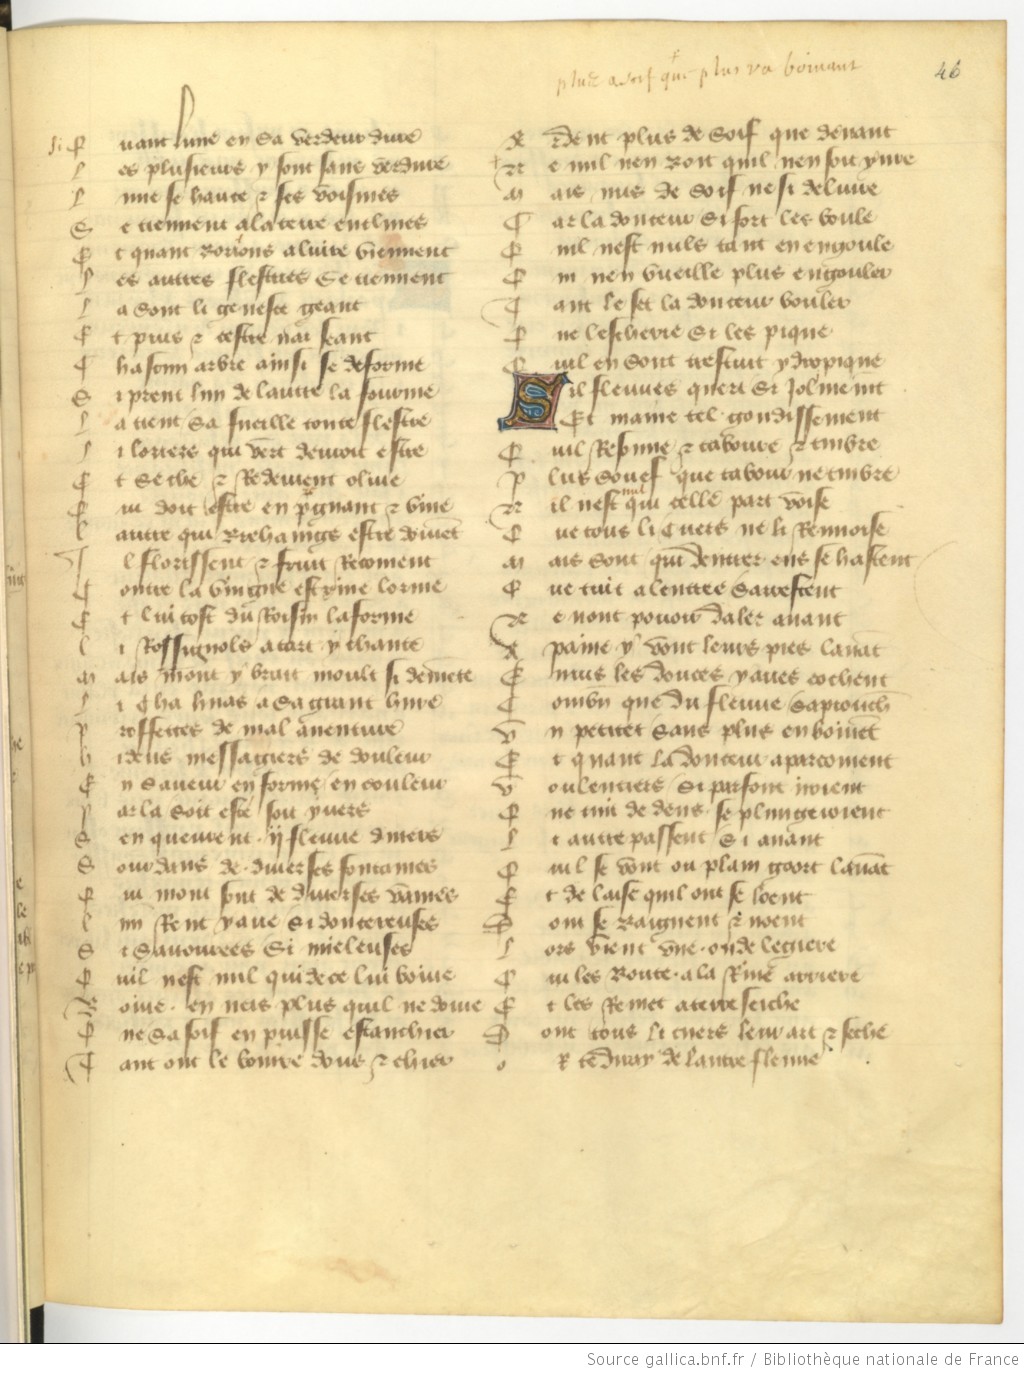 plus a soif qui plus va boivant
46
Si Quant lune en sa verdeur dure
Les plusieurs y sont sans verdure
Lune se hauce et ses voisines
Se tiennent a la terre enclines
Et quant borions a luire viennent
Les autres flestries se tiennent
La sont li geneste geant
Et pins et cestre nai seant
Chascun arbre ainsi se deforme
Si prent lun de lautre la fourme
La tient sa fueille toute flestre
Li loriers qui vert devroit estre
Et seche et redevient olive
Qui doit estre enpregnant et vive
autre qui brehaings estre doivent
Il florissent et fruit recoivent
Contre la vingne estrive lorme
Et lui tost du roisin la forme
Li rossignols a tart y chante
Mais mout y brait moult si demente
Li chahuas a sa grant hure
Proffetes de mal aventure
Hideus messagiers de douleur
En saveur en forme en couleur
Par la soit este soit yvers
Sen queurent ij fleuve divers
Sourdans de diverses fontaines
Qui mout sont de diverses vaines
Lun rent yaue si doucereuses
Si savourees si mieleuses
Quil nest nul qui de ce lui boive
Boive en neis plus quil ne doive
Que sa soif en puisse estanchier
Tant ont le boivre dous et chier
Ardent plus de soif que devant
Ne nul nen boit quil nen soit yvre
Mais nus de soif ne si delivre
Car la douceur si fort les boule
Quil nest nuls tant en engoule
Quil nen vueille plus engouler
Tant le set la douceur bouler
Que lescherie si les pique
Quil en sont trestuit ydropique
Sil fleuves queurt si jolment
Et maine tel gondissement
Quil resonne et taboure et timbre
Plus souef que tabour ne timbre
Nil nest nul qui celle part voise
Que tous li cuers ne li renvoise
Mais sont qui dentrer ens se hastent
Que tuit a lentree sarestent
Ne nont povoir daler avant
A paine y vont leurs pies lavant
Envis les douces yaues cochent
Combien que du fleuve saprouchent
Un petitet sans plus en boivent
Et quant la douceur aparcoivent
Voulentiers si parfont iroient
Que tuit de dens se plungeroient
Li autre passent si avant
Quil se vont ou plain gort lavant
Et de laise quil ont se loent
Dont se baignent et noent
Lors vient une onde legiere
Qui les boute a la rive arriere
Et les remet a terre seiche
Dont tous li cuers leur art et seche
Or te diray de lautre fleuve
Source gallica.bnf.fr / Bibliothèque nationale de France